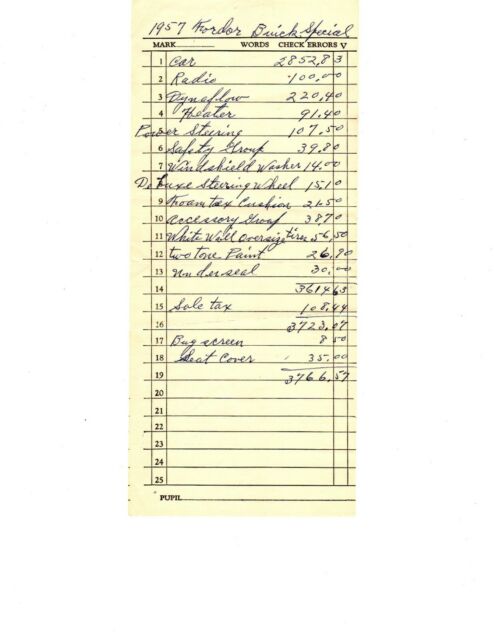 1957 Fordor Buick Special
MARK WORDS CHECK ERRORS √
1 Car 2852.83
2 Radio 100.00
3 Dynaflow 220.40
4 Heater 91.40
5 Power Steering 107.50
6 Safety Group 39.80
7 Windshield Washer 14.00
8 De Luxe Steering Wheel 15.10
9 Foamtex Cushion 21.50
10 Accessory Group 38.70
11 White Wall Oversize tires 56.50
12 two tone Paint 26.90
13 Underseal 30.00
14 3614.63
15 Sale tax 108.44
16 3723.07
17 Bug screen 8.50
18 Seat Cover 35.00
19 3766.57
20
21
22
23
24
25
PUPIL